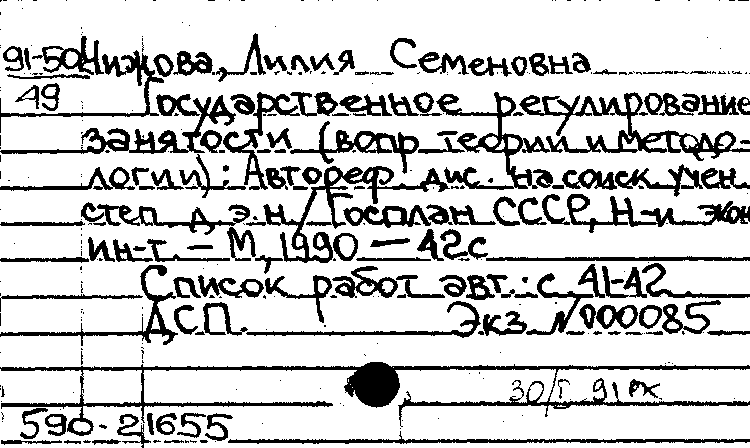 91-50 Чижова, Лилия Семеновна
49 Государственное регулирование
занятости (вопр. теории и методо-
логии): Автореф. дис. на соиск. учен.
степ. д.э.н. / Госплан СССР, Н-и экон.
ин-т. - М., 1990 - 42с
Список работ авт.: с. 41-42
ДСП. Экз. №000085
30/I 91
590-21655